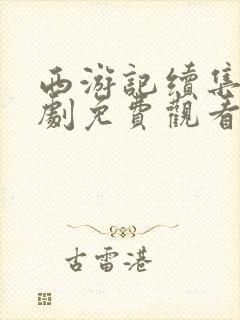 西游記續集
劇免費觀看
古雷港